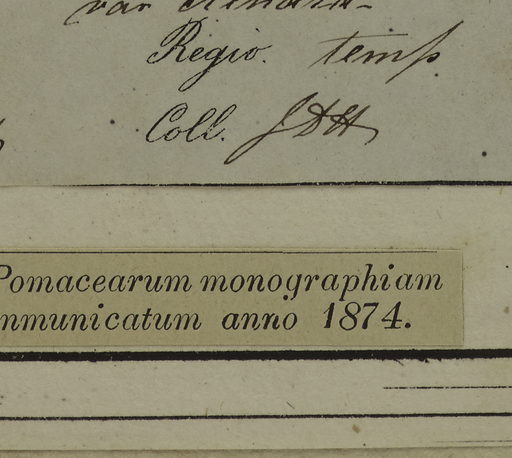 var
Regio. temp
Coll. JDH
Pomacearum monographiam
mmunicatum anno 1874.